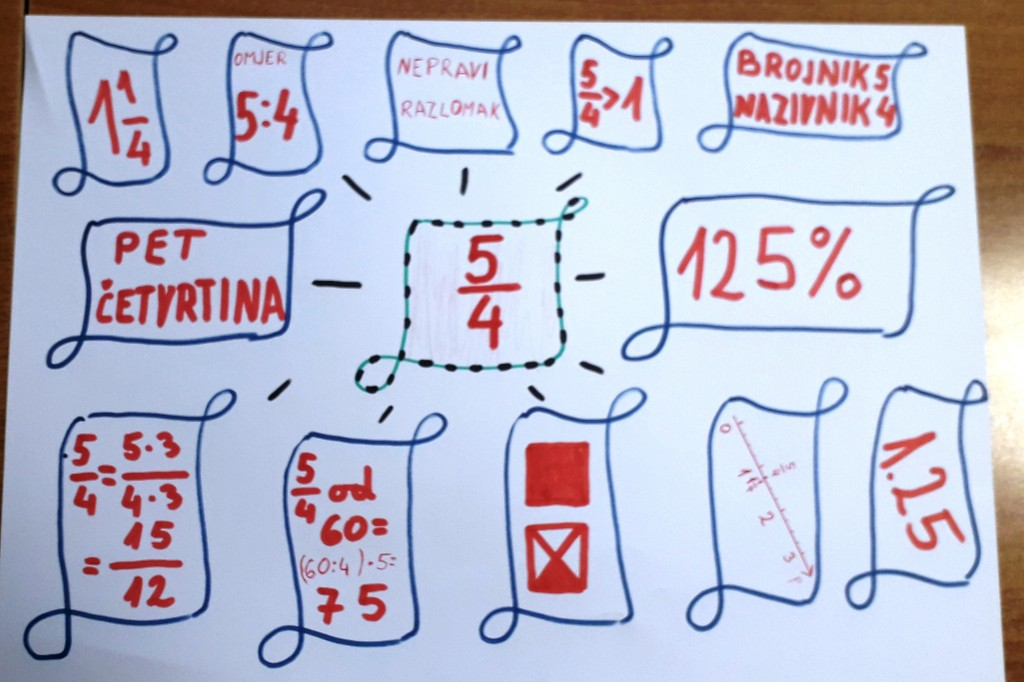 1 1/4
OMJER
5:4
NEPRAVI
RAZLOMAK
5/4>1
BROJNIK 5
NAZIVNIK 4
PET
ČETVRTINA
5/4
125%
5/4=5·3/4·3
=15/12
5/4 od
60=
(60:4)·5=
75
0
1
2
3
1.25